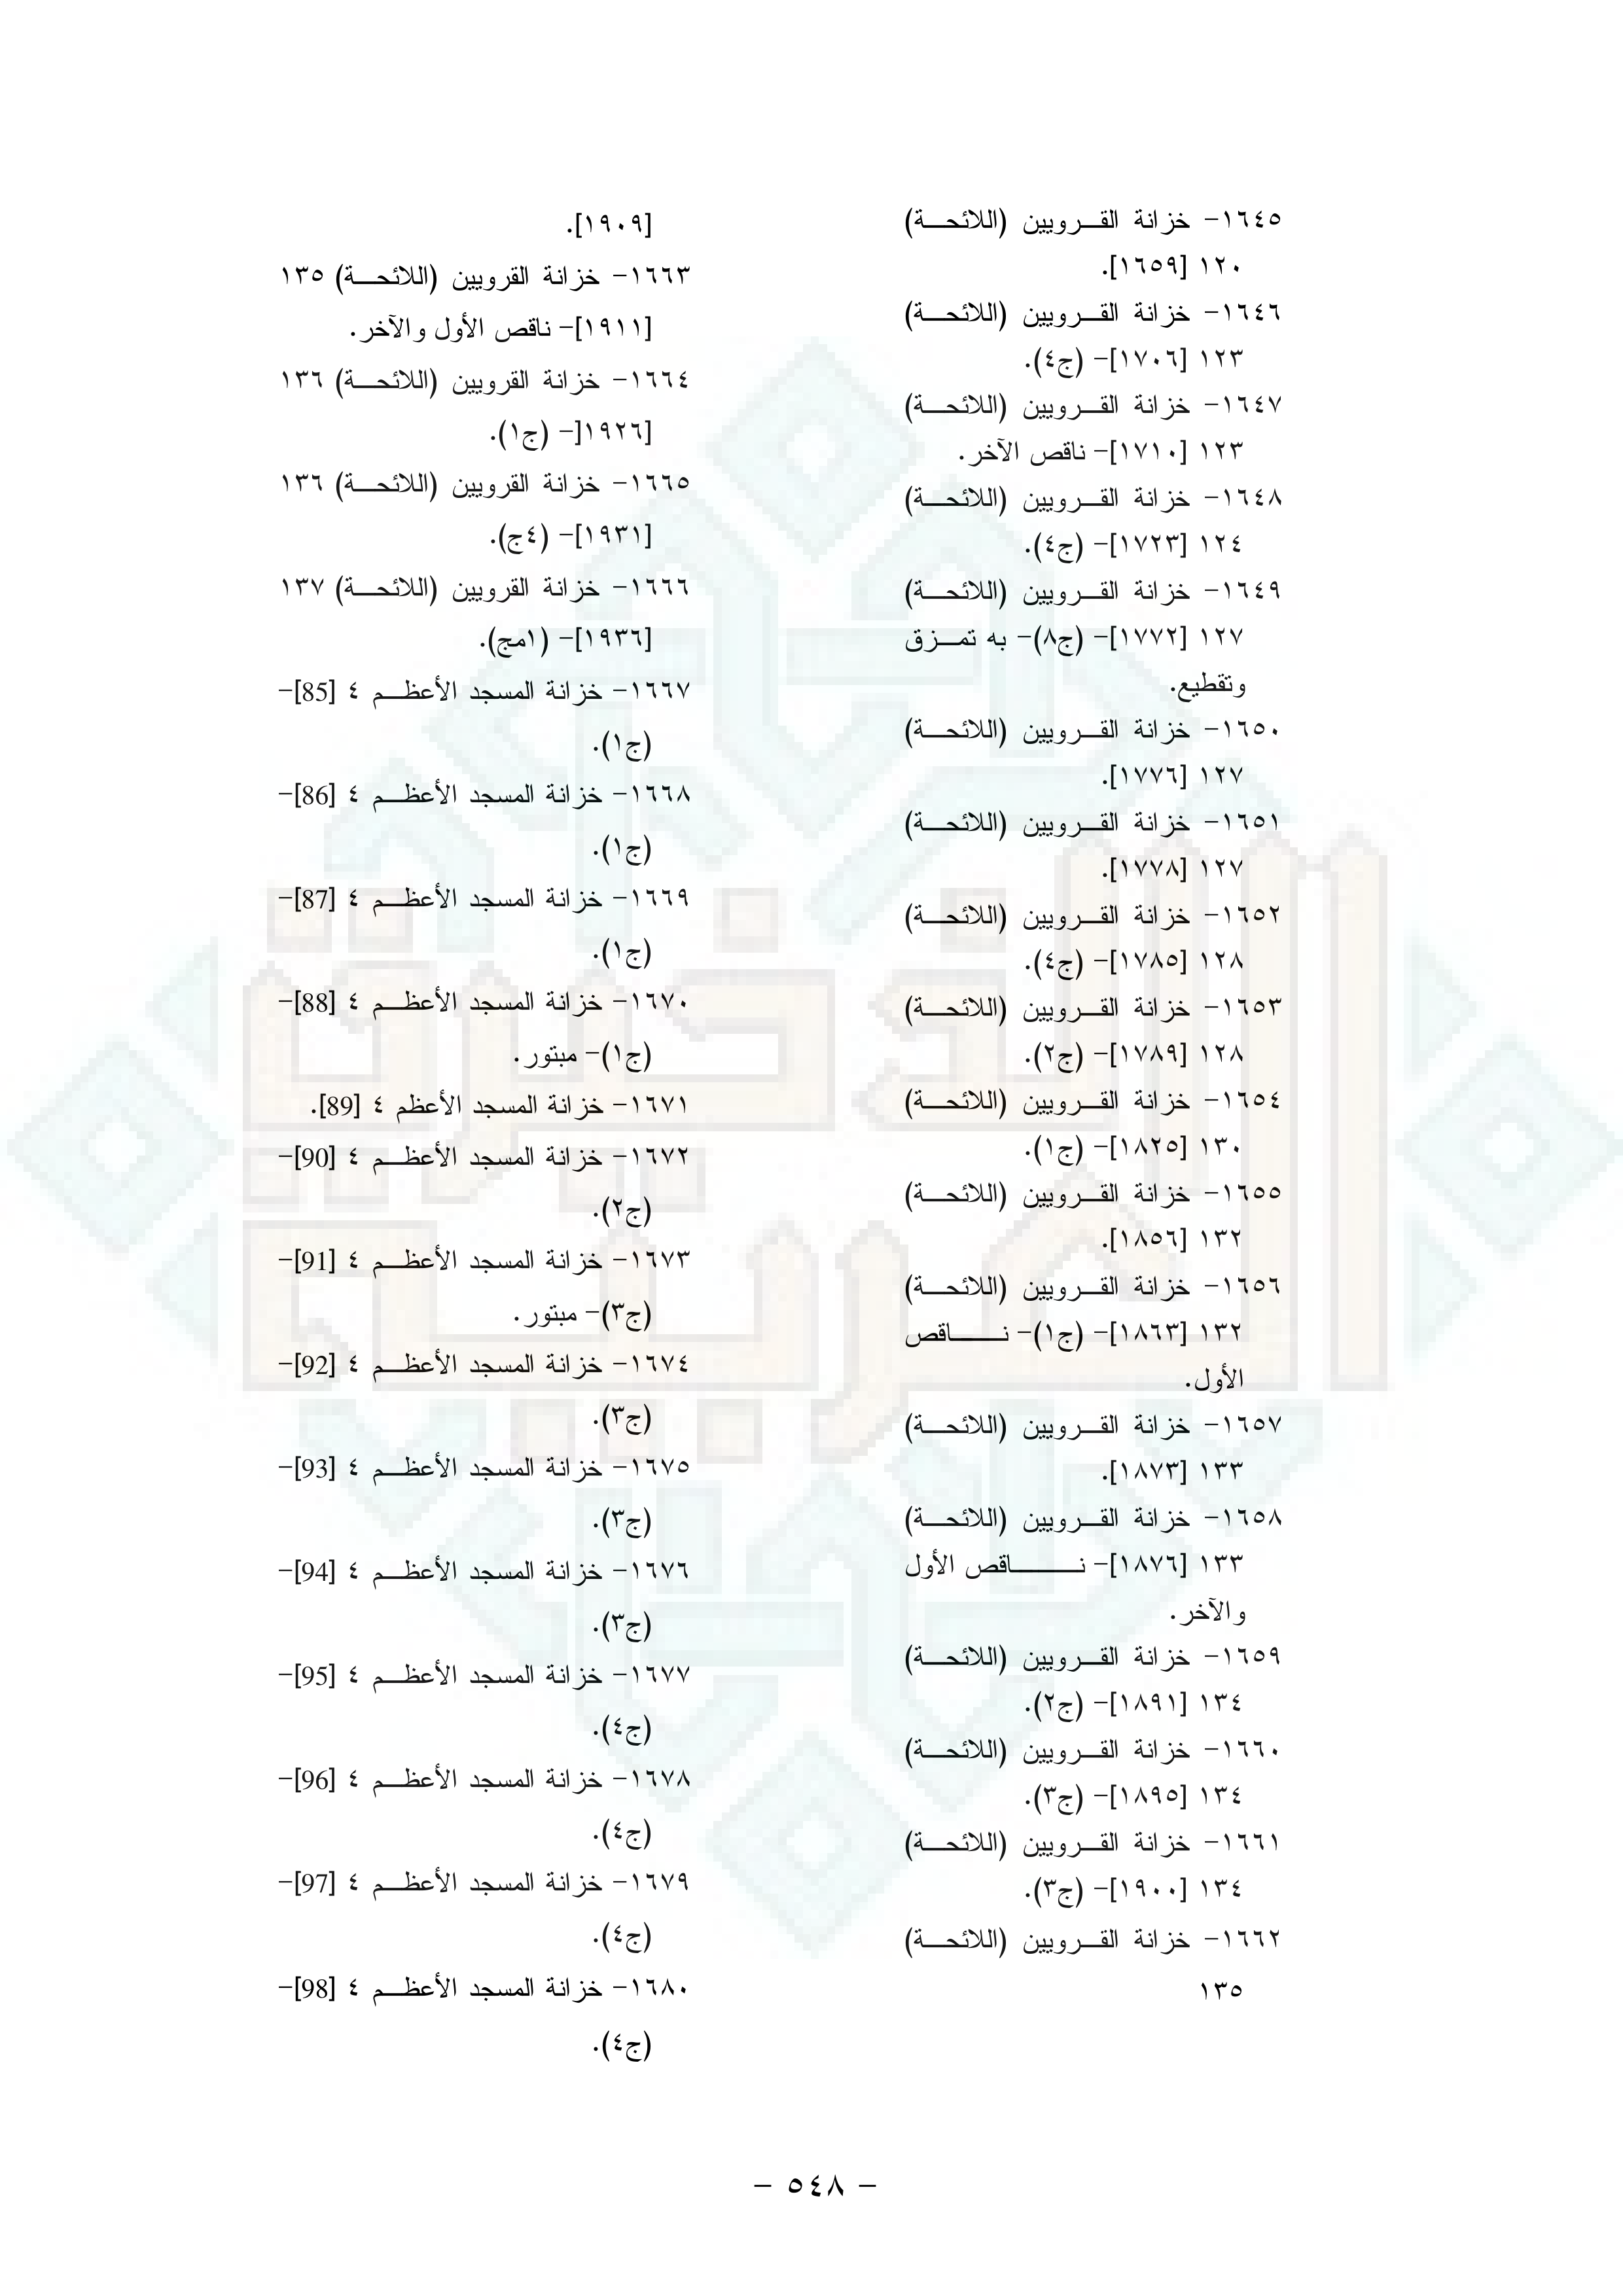 ١٦٤٥- خزانة القـــرويين (اللائحـــة)
١٢٠ [١٦٥٩].
١٦٤٦- خزانة القـــرويين (اللائحـــة)
١٢٣ [١٧٠٦]- (ج٤).
١٦٤٧- خزانة القـــرويين (اللائحـــة)
١٢٣ [١٧١٠]- ناقص الآخر.
١٦٤٨- خزانة القـــرويين (اللائحـــة)
١٢٤ [١٧٢٣]- (ج٤).
١٦٤٩- خزانة القـــرويين (اللائحـــة)
١٢٧ [١٧٧٢]- (ج٨)- به تمـــزق
وتقطيع.
١٦٥٠- خزانة القـــرويين (اللائحـــة)
١٢٧ [١٧٧٦].
١٦٥١- خزانة القـــرويين (اللائحـــة)
١٢٧ [١٧٧٨].
١٦٥٢- خزانة القـــرويين (اللائحـــة)
١٢٨ [١٧٨٥]- (ج٤).
١٦٥٣- خزانة القـــرويين (اللائحـــة)
١٢٨ [١٧٨٩]- (ج٢).
١٦٥٤- خزانة القـــرويين (اللائحـــة)
١٣٠ [١٨٢٥]- (ج١).
١٦٥٥- خزانة القـــرويين (اللائحـــة)
١٣٢ [١٨٥٦].
١٦٥٦- خزانة القـــرويين (اللائحـــة)
١٣٢ [١٨٦٣]- (ج١)- نـــــــاقص
الأول.
١٦٥٧- خزانة القـــرويين (اللائحـــة)
١٣٣ [١٨٧٣].
١٦٥٨- خزانة القـــرويين (اللائحـــة)
١٣٣ [١٨٧٦]- نـــــــــاقص الأول
والآخر.
١٦٥٩- خزانة القـــرويين (اللائحـــة)
١٣٤ [١٨٩١]- (ج٢).
١٦٦٠- خزانة القـــرويين (اللائحـــة)
١٣٤ [١٨٩٥]- (ج٣).
١٦٦١- خزانة القـــرويين (اللائحـــة)
١٣٤ [١٩٠٠]- (ج٣).
١٦٦٢- خزانة القـــرويين (اللائحـــة)
١٣٥
[١٩٠٩].
١٦٦٣- خزانة القرويين (اللائحـــة) ١٣٥
[١٩١١]- ناقص الأول والآخر.
١٦٦٤- خزانة القرويين (اللائحـــة) ١٣٦
[١٩٢٦[- (ج١).
١٦٦٥- خزانة القرويين (اللائحـــة) ١٣٦
[١٩٣١]- (٤ج).
١٦٦٦- خزانة القرويين (اللائحـــة) ١٣٧
[١٩٣٦]- (١مج).
١٦٦٧- خزانة المسجد الأعظـــم ٤ [85]-
(ج١).
١٦٦٨- خزانة المسجد الأعظـــم ٤ [86]-
(ج١).
١٦٦٩- خزانة المسجد الأعظـــم ٤ [87]-
(ج١).
١٦٧٠- خزانة المسجد الأعظـــم ٤ [88]-
(ج١)- مبتور.
١٦٧١- خزانة المسجد الأعظم ٤ [89].
١٦٧٢- خزانة المسجد الأعظـــم ٤ [90]-
(ج٢).
١٦٧٣- خزانة المسجد الأعظـــم ٤ [91]-
(ج٣)- مبتور.
١٦٧٤- خزانة المسجد الأعظـــم ٤ [92]-
(ج٣).
١٦٧٥- خزانة المسجد الأعظـــم ٤ [93]-
(ج٣).
١٦٧٦- خزانة المسجد الأعظـــم ٤ [94]-
(ج٣).
١٦٧٧- خزانة المسجد الأعظـــم ٤ [95]-
(ج٤).
١٦٧٨- خزانة المسجد الأعظـــم ٤ [96]-
(ج٤).
١٦٧٩- خزانة المسجد الأعظـــم ٤ [97]-
(ج٤).
١٦٨٠- خزانة المسجد الأعظـــم ٤ [98]-
(ج٤).
- ٥٤٨ -
الذخيرة
العربية